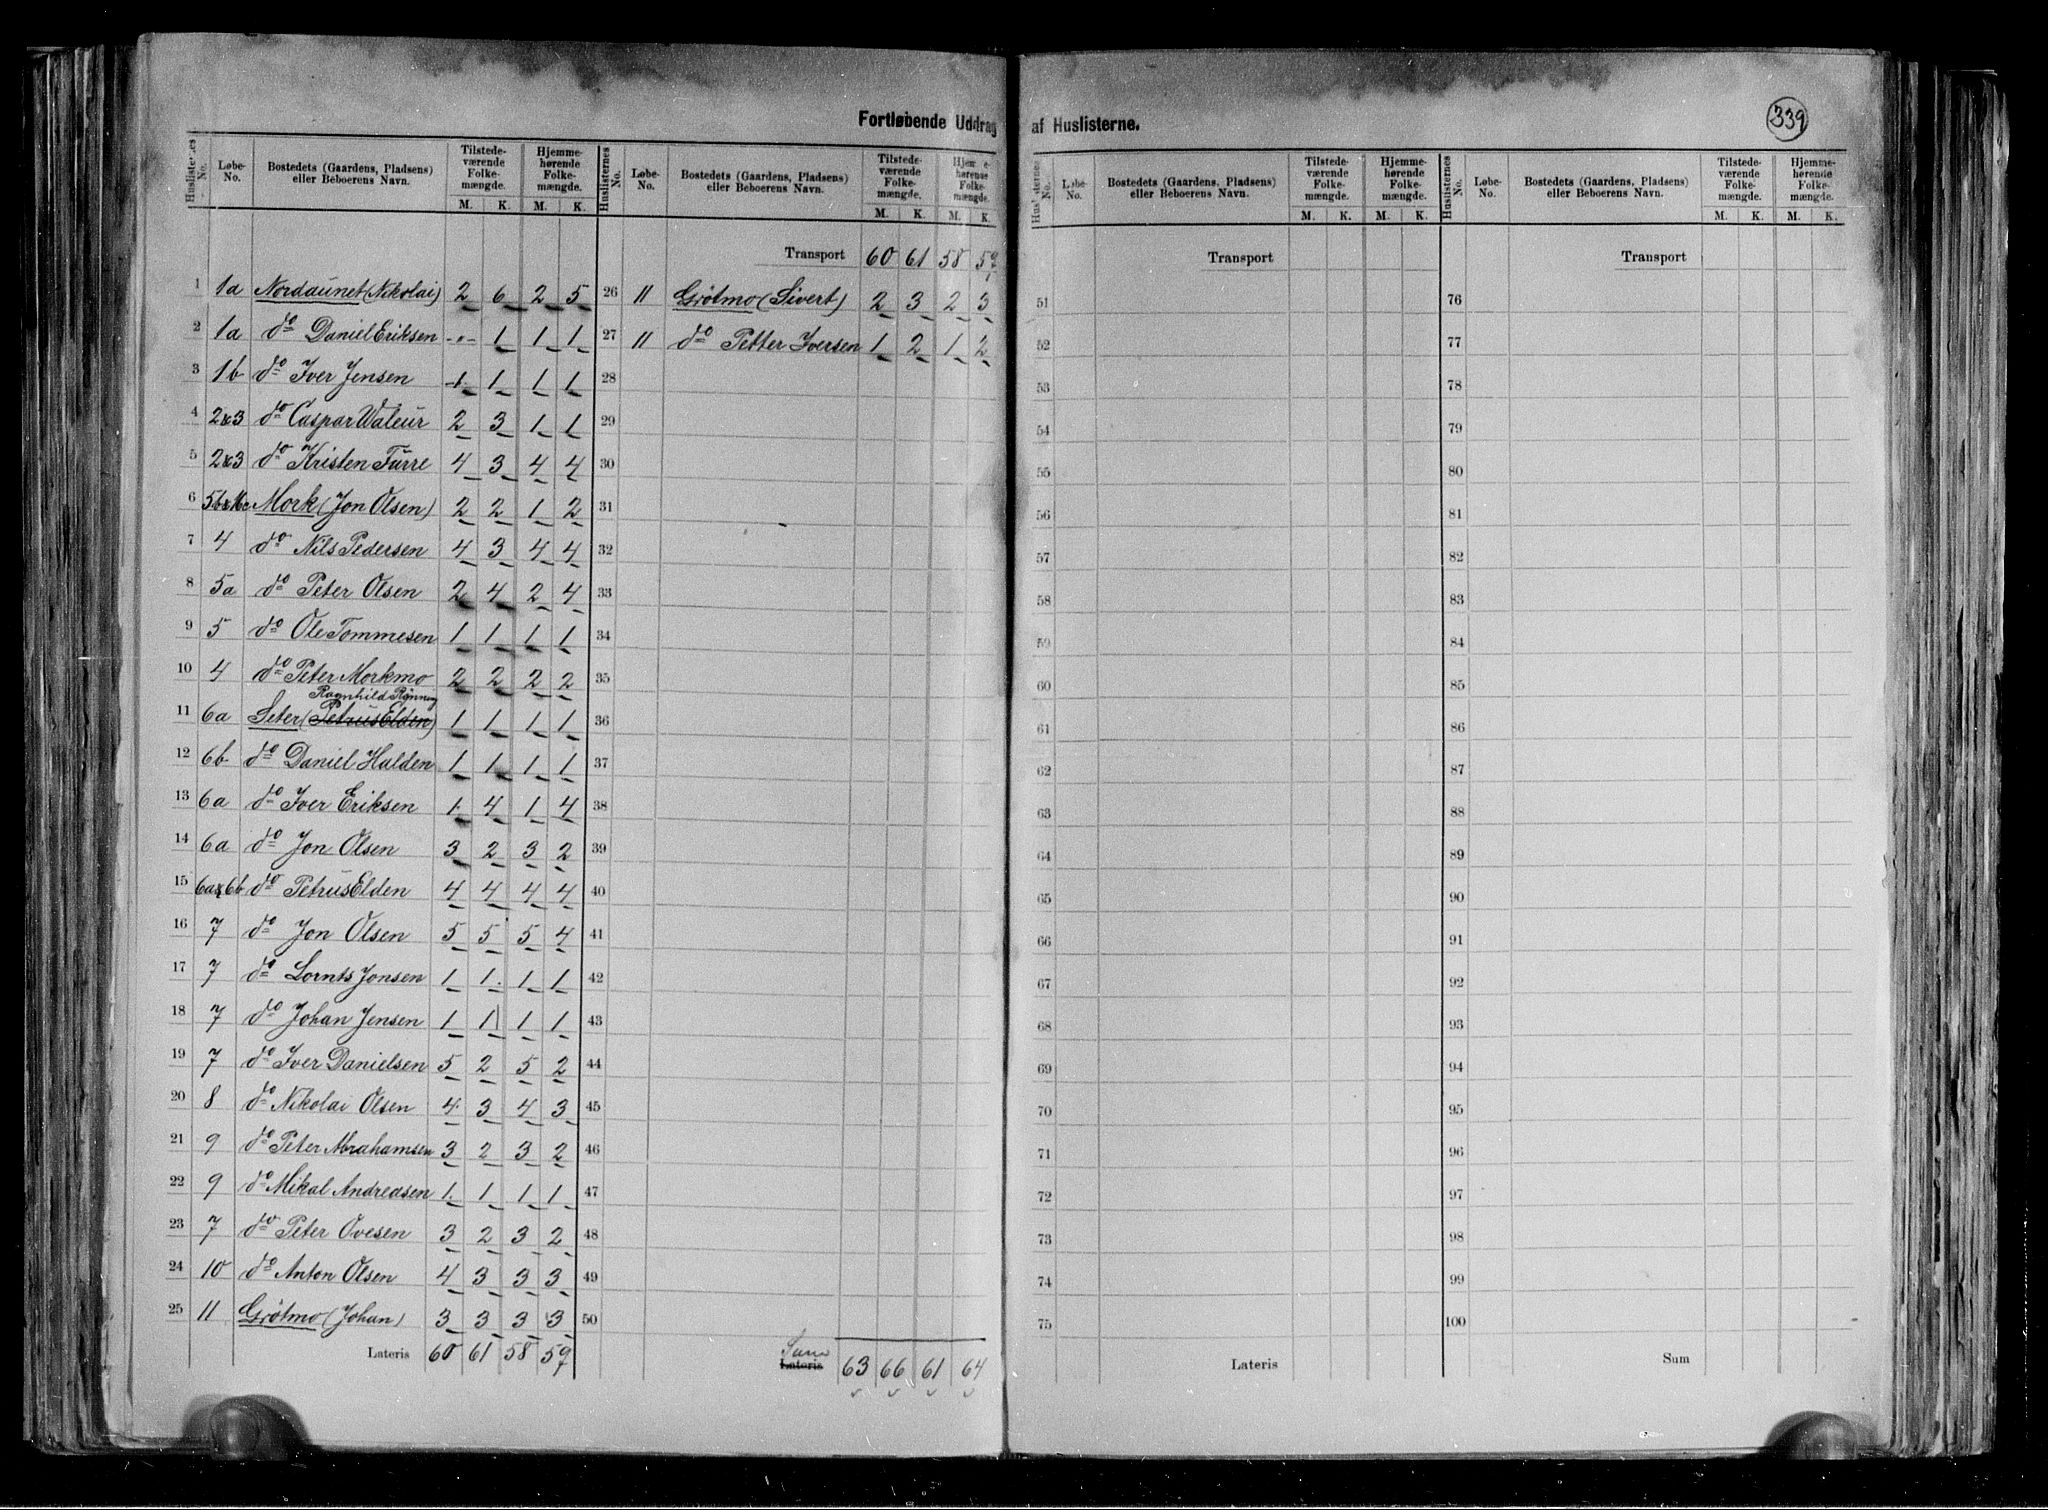 Fortløbende Uddrag af Huslisterne.
339
Huslisternes No. Løbe-No. Bostedets (Gaardens, Pladsens) eller Beboerens Navn. Tilstedeværende Folkemængde. M. K. Hjemmehørende Folkemængde. M. K.
1 1a Nordaunet (Nikolai) 2 6 2 5
2 1a do Daniel Eriksen -"- 1 1 1
3 1b do Iver Jensen 1 1 1 1
4 2&3 do Caspar Waleur 2 3 1 1
5 2&3 do Kristen Fürre 4 3 4 4
6 Mork (Jon Olsen) 2 2 1 2
7 4 do Nils Pedersen 4 3 4 4
8 5a do Peter Olsen 2 4 2 4
9 5 do Ole Tommesen 1 1 1 1
10 4 do Peter Morkmo 2 2 2 2
Ragnhild Rønning
11 6a Seter (Petrus Elden) 1 1 1 1
12 6b do Daniel Halden 1 1 1 1
13 6a do Iver Eriksen 1 4 1 4
14 6a do Jon Olsen 3 2 3 2
15 6a&6b do Petrus Elden 4 4 4 4
16 7 do Jon Olsen 5 5 5 4
17 7 do Lornts Jonsen 1 1 1 1
18 7 do Johan Jensen 1 1 1 1
19 7 do Iver Danielsen 5 2 5 2
20 8 do Nikolai Olsen 4 3 4 3
21 9 do Peter Abrahamsen 3 2 3 2
22 9 do Mikal Andreasen 1 1 1 1
23 7 do Peter Ovesen 3 2 3 2
24 10 do Anton Olsen 4 3 3 3
25 11 Grøtmo (Johan) 3 3 3 3
Lateris 60 61 58 59
Huslisternes No. Løbe-No. Bostedets (Gaardens, Pladsens) eller Beboerens Navn. Tilstedeværende Folkemængde. M. K. Hjemmehørende Folkemængde. M. K.
Transport 60 61 58 59
26 11 Grøtmo (Sivert) 2 3 2 3
27 11 do Petter Iversen 1 2 1 2
28
29
30
31
32
33
34
35
36
37
38
39
40
41
42
43
44
45
46
47
48
49
50
Sum
Lateris 63 66 61 64
Huslisternes No. Løbe-No. Bostedets (Gaardens, Pladsens) eller Beboerens Navn. Tilstedeværende Folkemængde. M. K. Hjemmehørende Folkemængde. M. K.
Transport
51
52
53
54
55
56
57
58
59
60
61
62
63
64
65
66
67
68
69
70
71
72
73
74
75
Lateris
Huslisternes No. Løbe-No. Bostedets (Gaardens, Pladsens) eller Beboerens Navn. Tilstedeværende Folkemængde. M. K. Hjemmehørende Folkemængde. M. K.
Transport
76
77
78
79
80
81
82
83
84
85
86
87
88
89
90
91
92
93
94
95
96
97
98
99
100
Sum